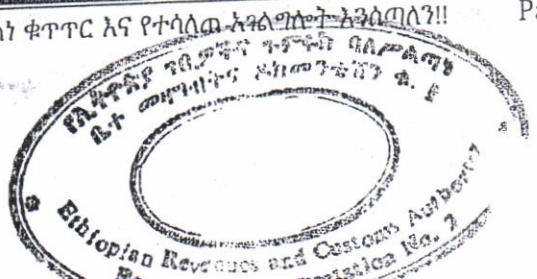 ቁጥጥር እና የተሳለጠ አገልግሎት እንሰጣለን!!
የኢትዮጵያ ገቢዎችና ጉምሩክ ባለሥልጣን
ቤተ መዛግብትና ዶክመንቴሽን ቁ.
Ethiopian Revenues and Customs Authority
No. 2